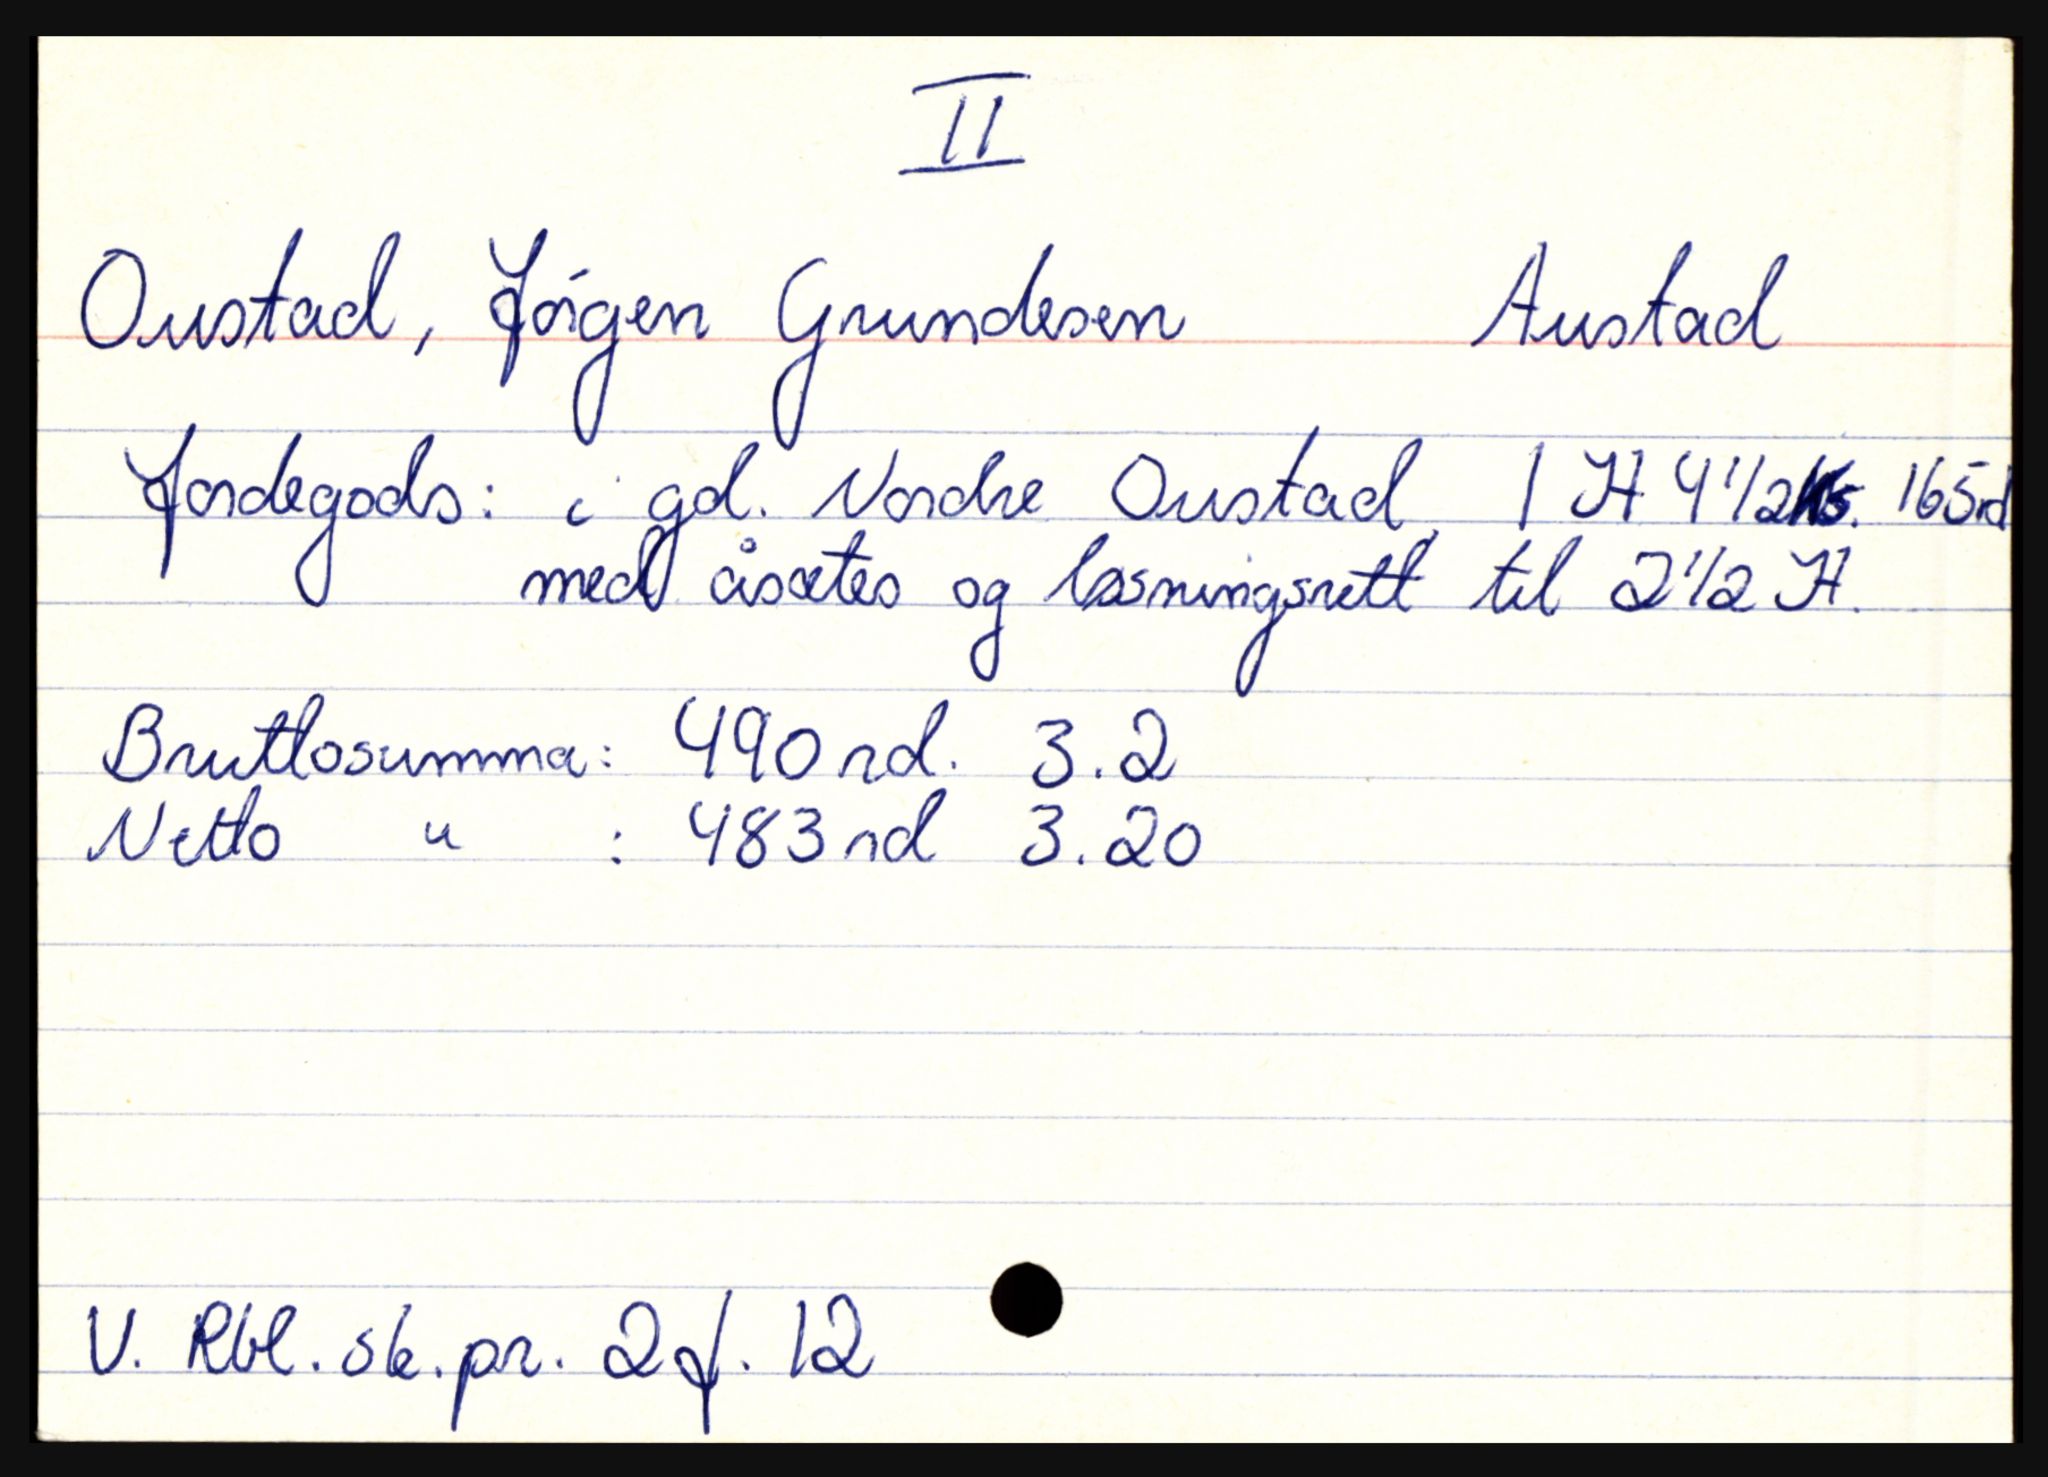 II
Oustad, Jørgen Grundesen Austad
Jordegods: i gd. Nordre Oustad 1 H 4 1/2 ks. 165rd
med åsætes og løsningsrett til 2 1/2 H.
Bruttosumma: 490 rd. 3.2
Netto " : 483 rd 3.20
V. Rbl. sk. pr. 2 f. 12